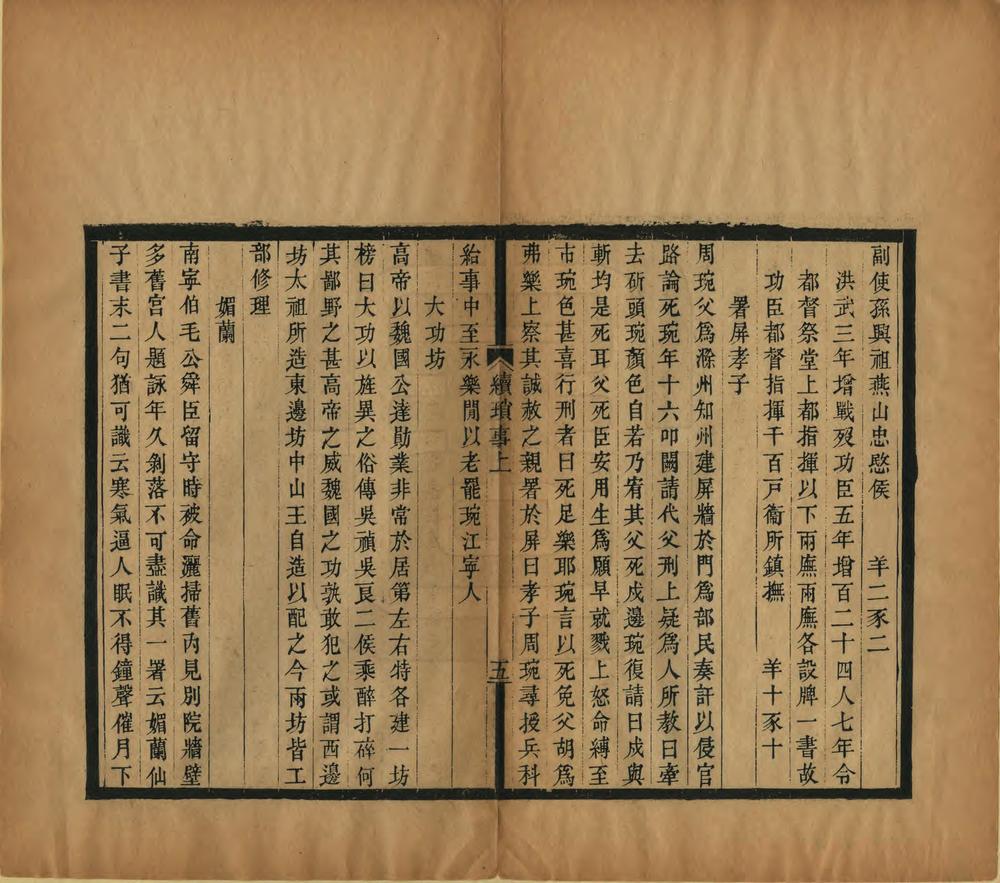 副使孫興祖燕山忠愍侯　羊二豕二
洪武三年增戰歿功臣五年增百二十四人七年令
都督祭堂上都指揮以下兩廡兩廡各設牌一書故
功臣都督指揮千百戸衞所鎮撫　羊十豕十
署屏孝子
周琬父爲滁州知州建屏牆於門爲部民奏訐以侵官
路論死琬年十六叩闕請代父刑上疑爲人所教曰牽
去斫頭琬顏色自若乃宥其父死戍邊琬復請曰戍與
斬均是死耳父死臣安用生爲願早就戮上怒命縛至
市琬色甚喜行刑者曰死足樂耶琬言以死免父胡爲
弗樂上察其誠赦之親署於屏曰孝子周琬尋授兵科
續瑣事上　五
給事中至永樂閒以老罷琬江寧人
大功坊
高帝以魏國公達勛業非常於居第左右特各建一坊
榜曰大功以旌異之俗傳吳禎吳良二侯乘醉打碎何
其鄙野之甚高帝之威魏國之功孰敢犯之或謂西邊
坊太祖所造東邊坊中山王自造以配之今兩坊皆工
部修理
媚蘭
南寧伯毛公舜臣留守時被命灑掃舊內見別院牆壁
多舊宮人題詠年久剝落不可盡識其一署云媚蘭仙
子書末二句猶可識云寒氣逼人眠不得鐘聲催月下